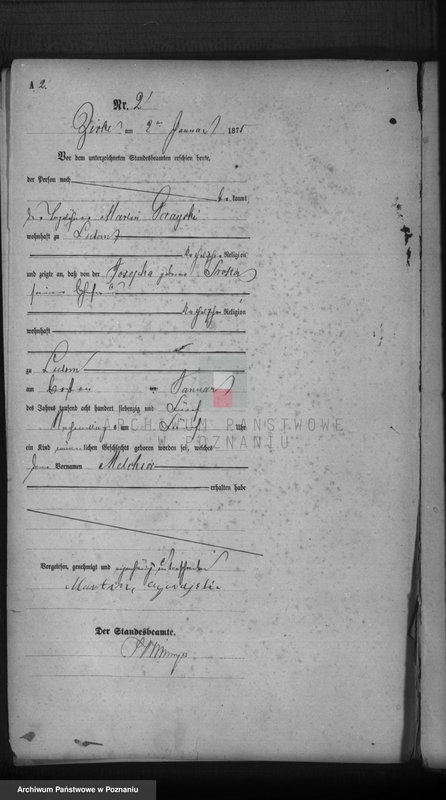 A 2.
Nr. 2
Zirke am 2ten Januar 1875
Vor dem unterzeichneten Standesbeamten erschien heute,
der Person nach
be kannt
Martin
wohnhaft zu
katholischer Religion
und zeigte an, daß von der Josepha geborne Sroka
seiner Ehefrau
katholischer Religion
wohnhaft
zu
am ersten Januar
des Jahres tausend acht hundert siebenzig und fünf
Nachmittags um Uhr
ein Kind männlichen Geschlechts geboren worden sei, welches
Vornamen Melchior
erhalten habe
Vorgelesen, genehmigt und eigenhändig unterschrieben
Martin
Der Standesbeamte.
ARCHIWUM PAŃSTWOWE
W POZNANIU
Archiwum Państwowe w Poznaniu